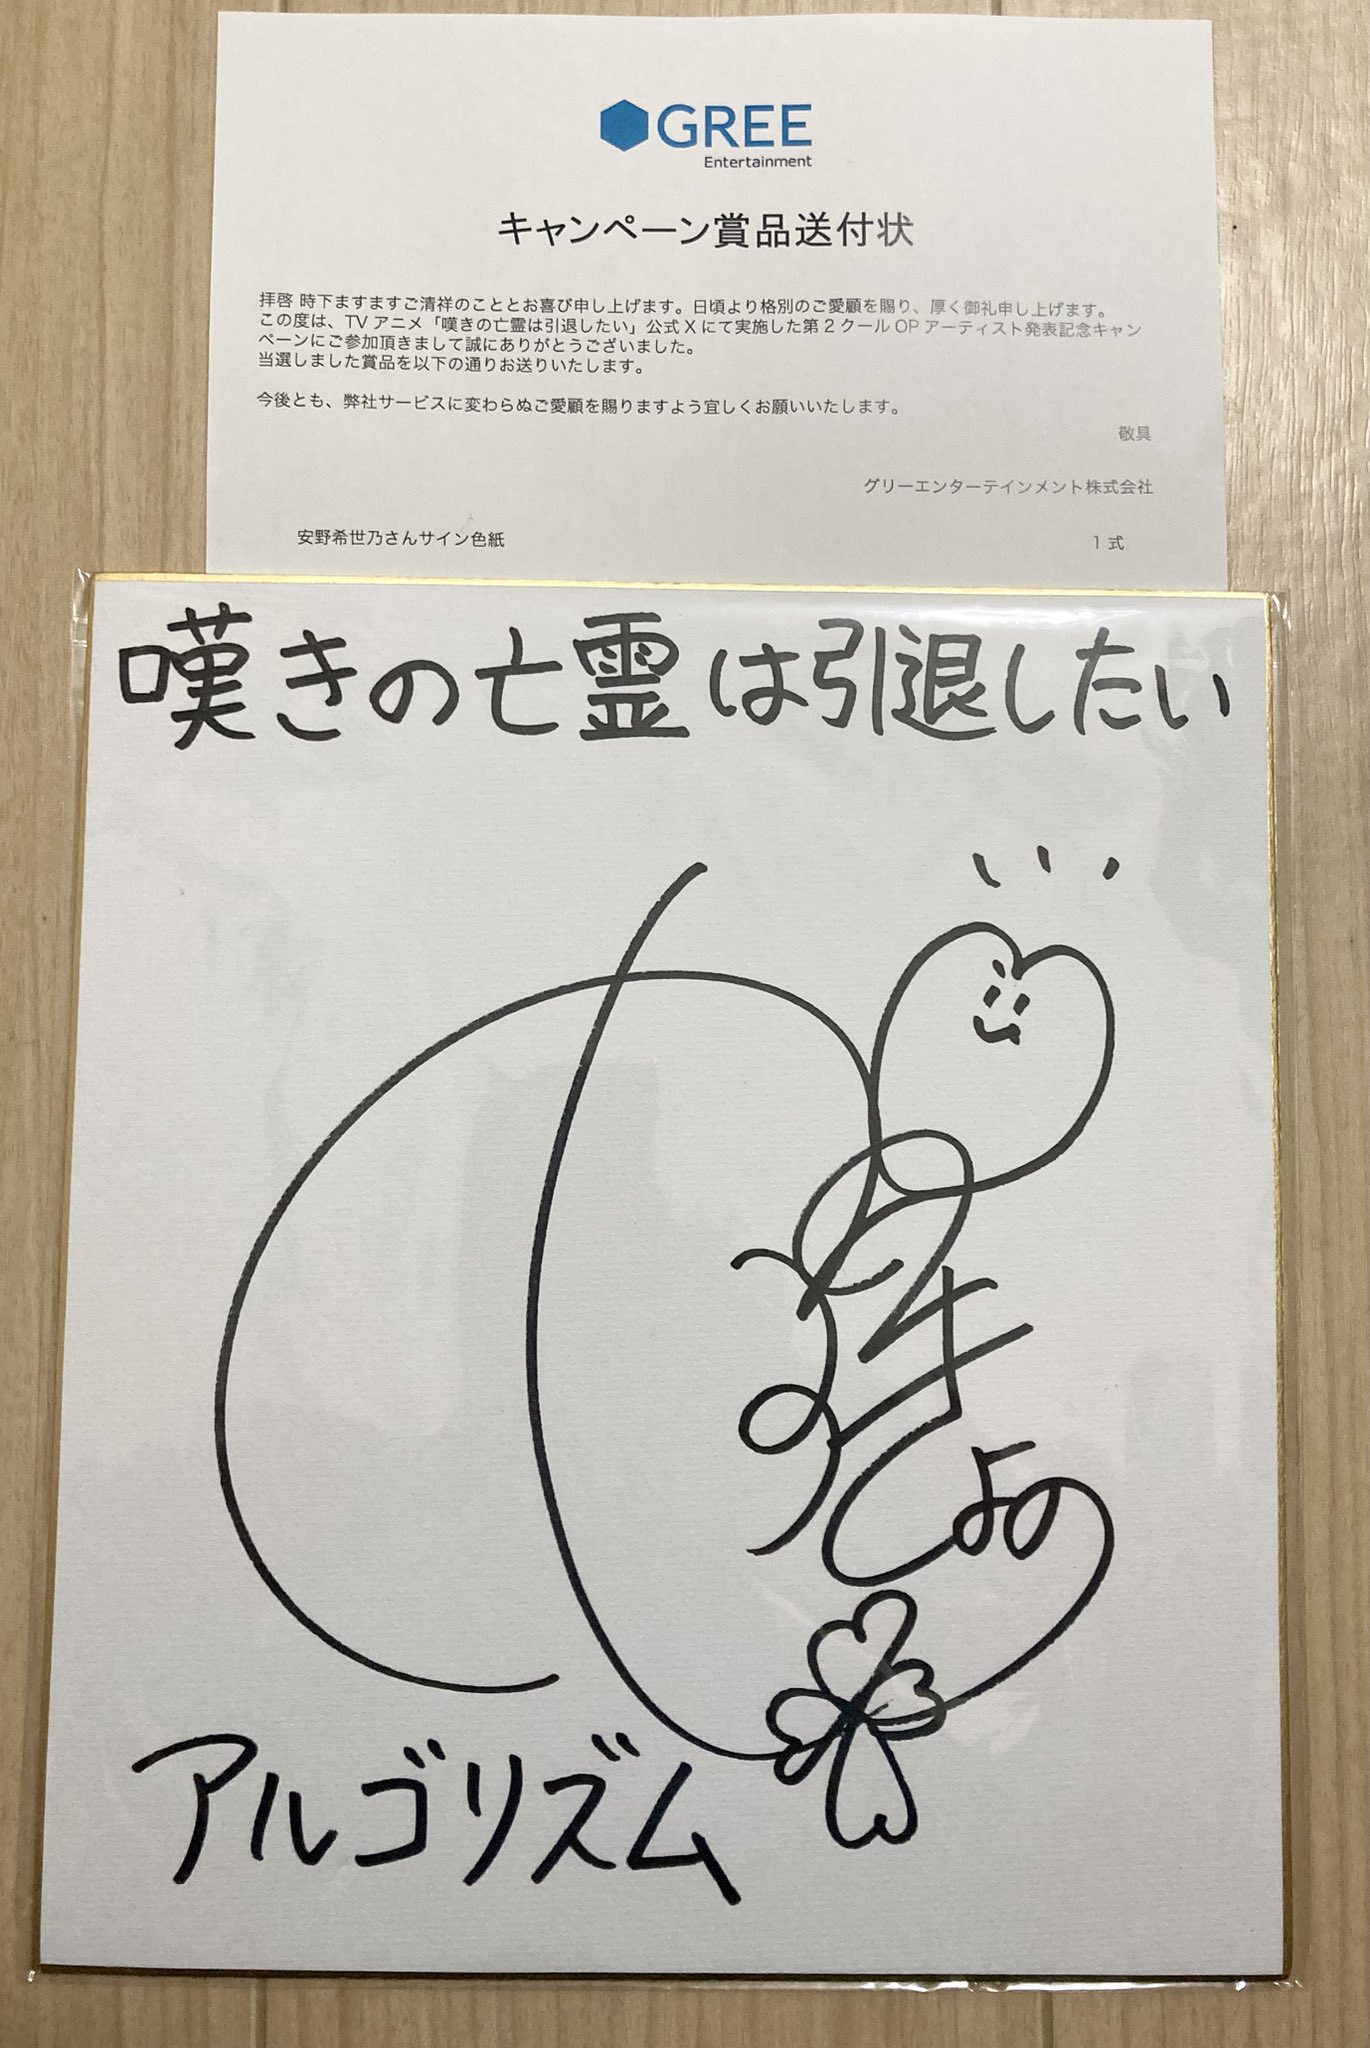 GREE
Entertainment
キャンペーン賞品送付状
拝啓 時下ますますご清祥のこととお喜び申し上げます。日頃より格別のご愛顧を賜り、厚く御礼申し上げます。
この度は、TV アニメ「嘆きの亡霊は引退したい」公式 X にて実施した第 2 クール OP アーティスト発表記念キャン
ペーンにご参加頂きまして誠にありがとうございました。
当選しました賞品を以下の通りお送りいたします。
今後とも、弊社サービスに変わらぬご愛顧を賜りますよう宜しくお願いいたします。
敬具
グリーエンターテインメント株式会社
安野希世乃さんサイン色紙 1 式
嘆きの亡霊は引退したい
アルゴリズム